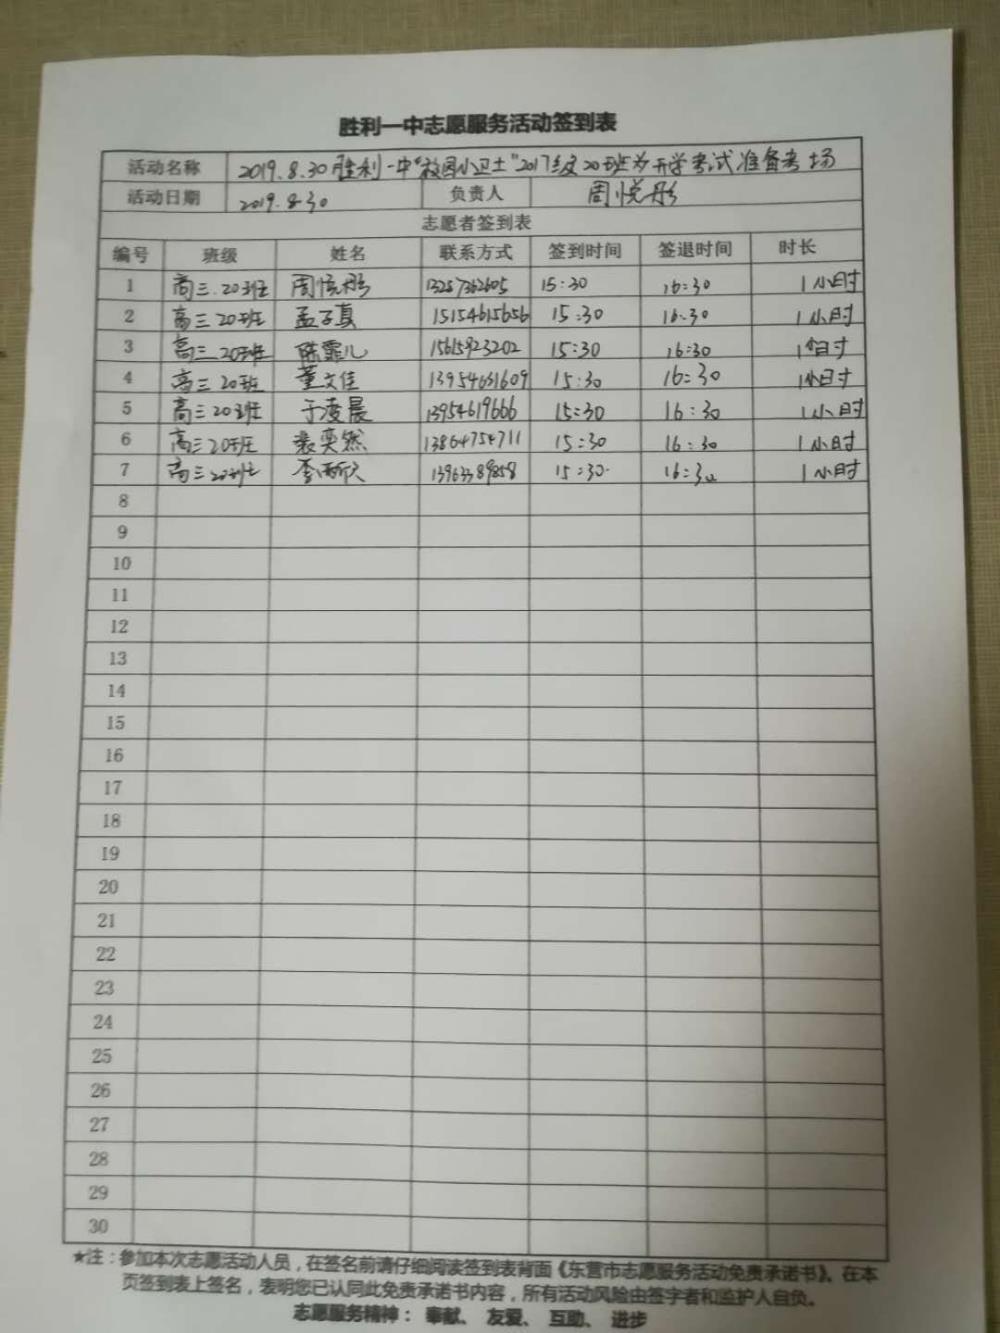 胜利一中志愿服务活动签到表
活动名称 2019.8.30胜利一中"校园小卫士"2017级20班为开学考试准备考场
活动日期 2019.8.30 负责人 周悦彤
志愿者签到表
编号 班级 姓名 联系方式 签到时间 签退时间 时长
1 高三.20班 周悦彤 13257362605 15:30 16:30 1小时
2 高三20班 孟子真 15154615656 15:30 16:30 1小时
3 高三20班 陈霏儿 15615923202 15:30 16:30 1小时
4 高三20班 董文佳 13954631609 15:30 16:30 1小时
5 高三20班 于凌晨 13954619666 15:30 16:30 1小时
6 高三20班 裴奕然 13864754711 15:30 16:30 1小时
7 高三20班 李雨欣 13963389858 15:30 16:30 1小时
8
9
10
11
12
13
14
15
16
17
18
19
20
21
22
23
24
25
26
27
28
29
30
★注：参加本次志愿活动人员，在签名前请仔细阅读签到表背面《东营市志愿服务活动免责承诺书》。在本
页签到表上签名，表明您已认同此免责承诺书内容，所有活动风险由签字者和监护人自负。
志愿服务精神： 奉献、 友爱、 互助、 进步